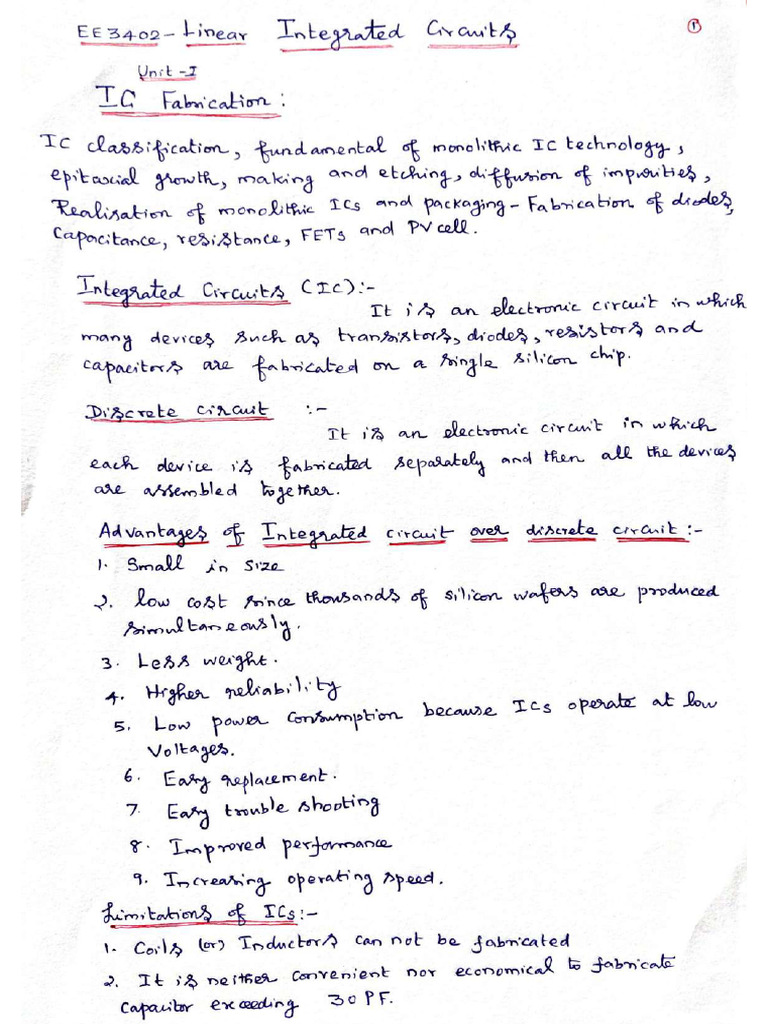 EE3402 - Linear Integrated Circuits
1
Unit - I
IC Fabrication :
IC classification, fundamental of monolithic IC technology,
epitaxial growth, making and etching, diffusion of impurities,
Realisation of monolithic ICs and packaging - Fabrication of diodes,
Capacitance, resistance, FETs and PV cell.
Integrated Circuits (IC) :-
It is an electronic circuit in which
many devices such as transistors, diodes, resistors and
capacitors are fabricated on a single silicon chip.
Discrete circuit :-
It is an electronic circuit in which
each device is fabricated separately and then all the devices
are assembled together.
Advantages of Integrated circuit over discrete circuit :-
1. Small in size
2. low cost since thousands of silicon wafers are produced
simultaneously.
3. Less weight.
4. Higher reliability
5. Low power consumption because ICs operate at low
Voltages.
6. Easy replacement.
7. Easy trouble shooting
8. Improved performance
9. Increasing operating speed.
Limitations of ICs :-
1. Coils (or) Inductors can not be fabricated
2. It is neither convenient nor economical to fabricate
capacitor exceeding 30 PF.